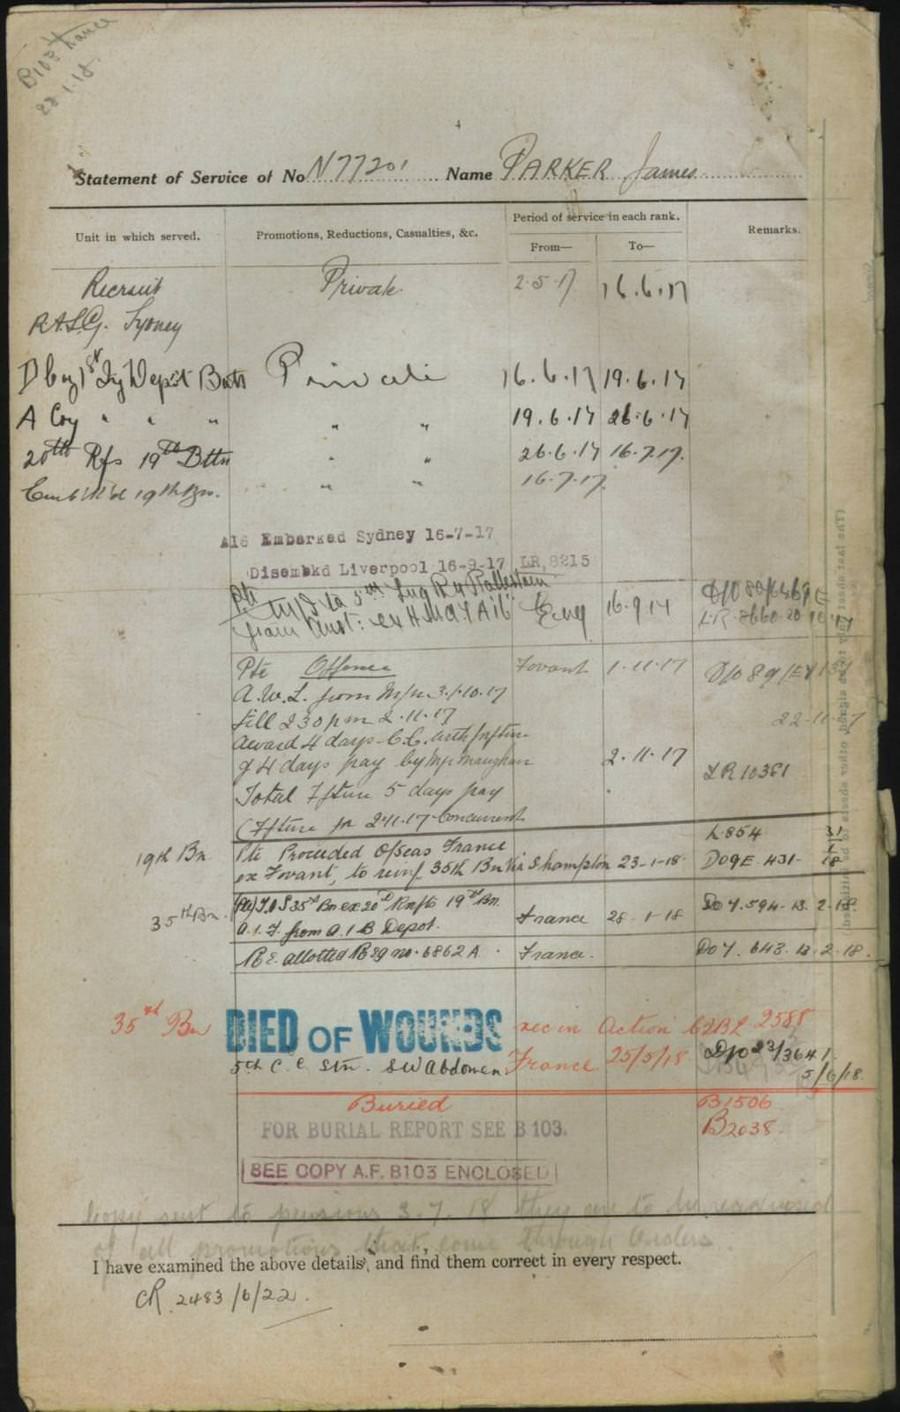 B103 France
28.1.18.
Statement of Service of No N77201 Name PARKER James
Unit in which served. Promotions, Reductions, Casualties, &c. Period of service in each rank. Remarks.
From— To—
Recruit Private 2.5.17 16.6.17
R.A.S.G. Sydney
D Coy 1st Inf Depot Batn Private 16.6.17 19.6.17
A Coy " " " " " 19.6.17 26.6.17
20th Rfs 19th Bttn " " 26.6.17 16.7.17.
19th Bn. " " 16.7.17.
A16 Embarked Sydney 16-7-17
Disembkd Liverpool 16-9-17 LR 8215
Pte M/I to 5th Tng Bn
from Aust: ex H.M.A.T. A16 Eng 16.9.17
LR
Pte Offence Fovant 1.11.17
A.W.L. from M/n 31.10.17
till 230 pm 2.11.17 22-11-17
Award 4 days C.C.
of 4 days pay by Maj 2.11.17
Total F/ture 5 days pay LR10361
(F/ture for 2.11.17 Concurrent
19th Bn Pte Proceeded O/seas France L.854 31
ex Fovant, to reinf 35th Bn via S'hampton 23-1-18 DO9E.431- 1 18
35th Bn. (Pte) T.O.S 35th Bn ex 20th Rnfts 19th Bn France 28.1.18 DO7.594-13.2.18.
A.I.F. from A.I.B Depot.
Re allotted Reg no. 6862A. France. DO7.643.13.2.18.
35th Bn DIED OF WOUNDS rec in Action C2BL 2588
5th C C Stn. SW Abdomen France 25/5/18 D/O 23/3641.
5/6/18.
Buried B1506
FOR BURIAL REPORT SEE B 103. B2038.
SEE COPY A.F. B103 ENCLOSED
Copy sent to pensions 3.7.18 they are to be
of all promotions that come through Orders.
I have examined the above details, and find them correct in every respect.
CR 2483/6/22.